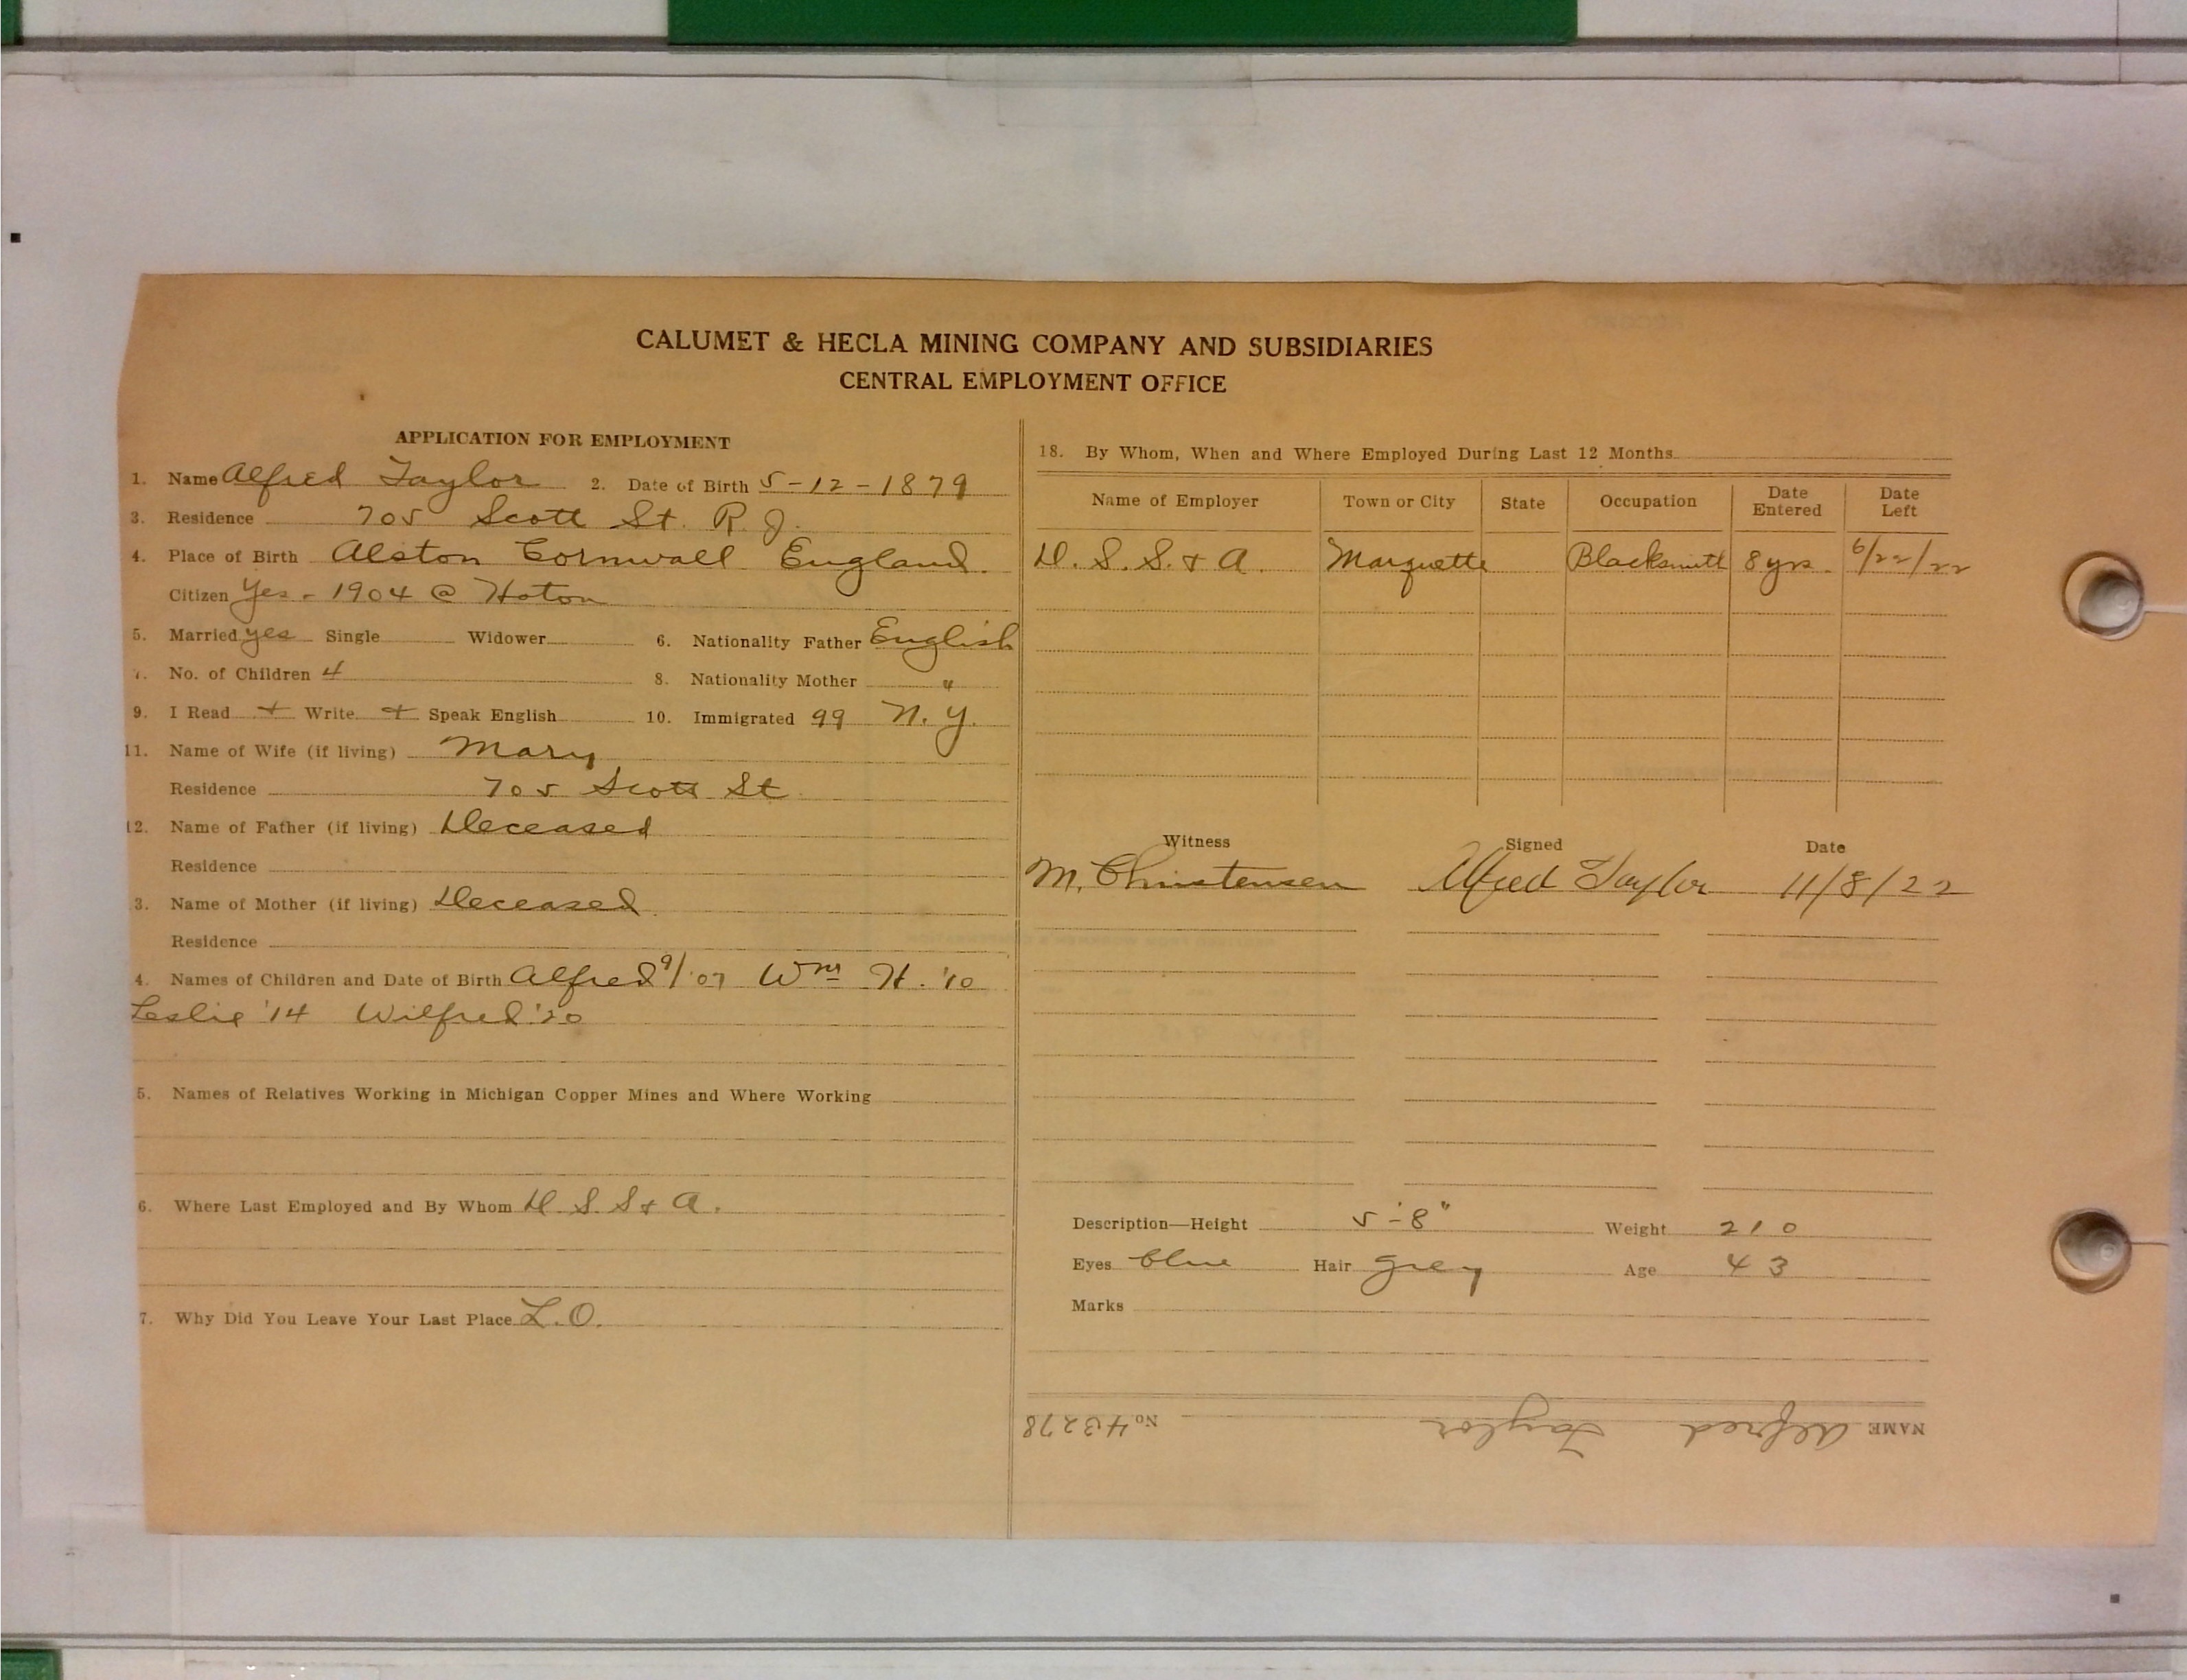 CALUMET & HECLA MINING COMPANY AND SUBSIDIARIES
CENTRAL EMPLOYMENT OFFICE
APPLICATION FOR EMPLOYMENT
1. Name Alfred Taylor 2. Date of Birth 5-12-1879
3. Residence 705 Scott St. R. J.
4. Place of Birth Alston Cornwall England.
Citizen Yes - 1904 @ Hoton
5. Married yes Single Widower 6. Nationality Father English
7. No. of Children 4 8. Nationality Mother "
9. I Read + Write + Speak English 10. Immigrated 99 N. Y.
11. Name of Wife (if living) Mary
Residence 705 Scott St
12. Name of Father (if living) Deceased
Residence
3. Name of Mother (if living) Deceased.
Residence
4. Names of Children and Date of Birth Alfred 9/'07 Wm H. '10
Leslie '14 Wilfred '20
5. Names of Relatives Working in Michigan Copper Mines and Where Working
6. Where Last Employed and By Whom D. S. S & A.
7. Why Did You Leave Your Last Place L.O.
18. By Whom, When and Where Employed During Last 12 Months
Name of Employer Town or City State Occupation Date Entered Date Left
D. S. S. & A. Marquette Blacksmith 8 yrs. 6/22/22
Witness Signed Date
M. Christensen Alfred Taylor 11/8/22
Description—Height 5'-8" Weight 210
Eyes blue Hair grey Age 43
Marks
NAME Alfred Taylor No. 43278